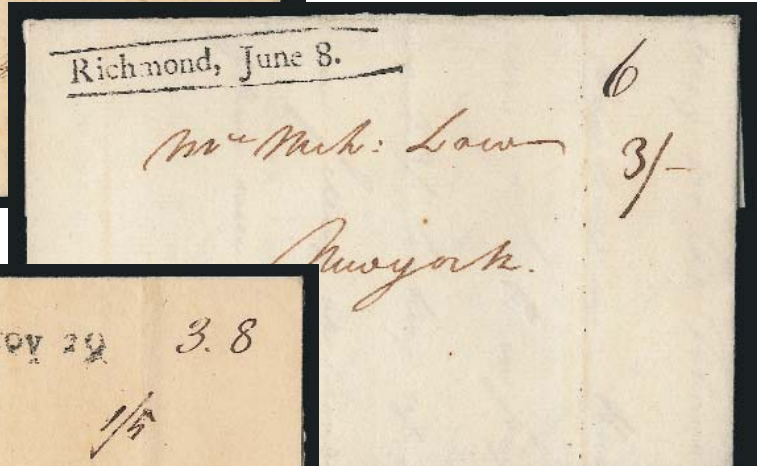 Richmond, June 8.
6
Mr Nich: Low
3/-
Newyork.
ov 29
3.8
1/5